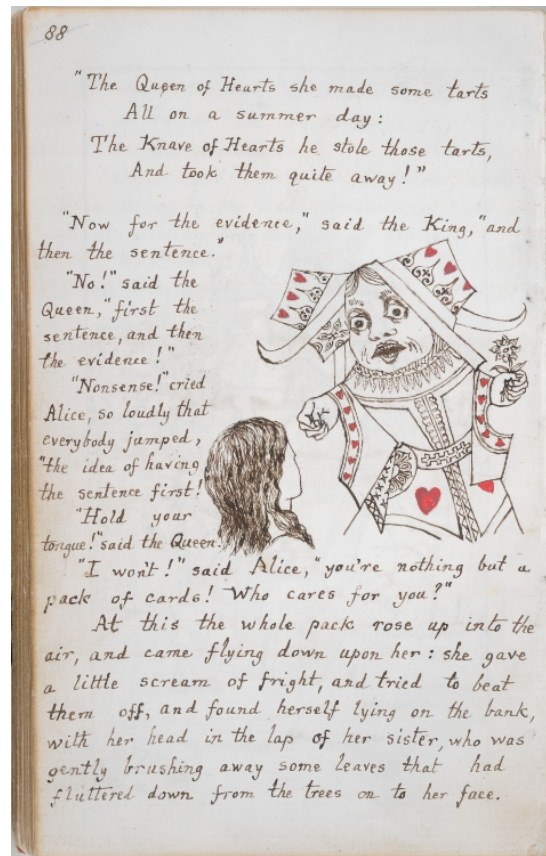 88
"The Queen of Hearts she made some tarts
All on a summer day:
The Knave of Hearts he stole those tarts,
And took them quite away!"
"Now for the evidence," said the King, "and
then the sentence."
"No!" said the
Queen, "first the
sentence, and then
the evidence!"
"Nonsense!" cried
Alice, so loudly that
everybody jumped,
"the idea of having
the sentence first!
"Hold your
tongue!" said the Queen.
"I won't!" said Alice, "you're nothing but a
pack of cards! Who cares for you?"
At this the whole pack rose up into the
air, and came flying down upon her: she gave
a little scream of fright, and tried to beat
them off, and found herself lying on the bank,
with her head in the lap of her sister, who was
gently brushing away some leaves that had
fluttered down from the trees on to her face.